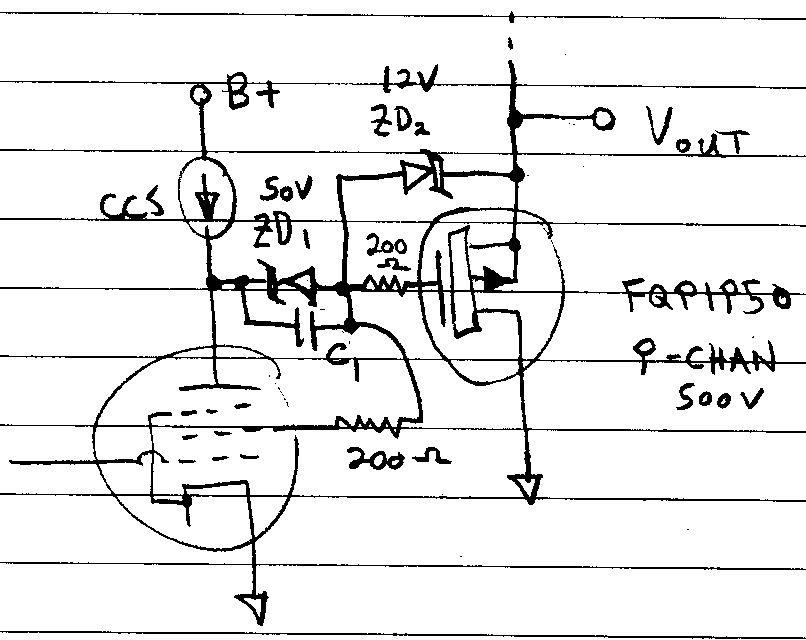 B+
12V
ZD2
VOUT
CCS
50V
ZD1
200
Ω
FQP1P50
P-CHAN
500V
C1
200 Ω